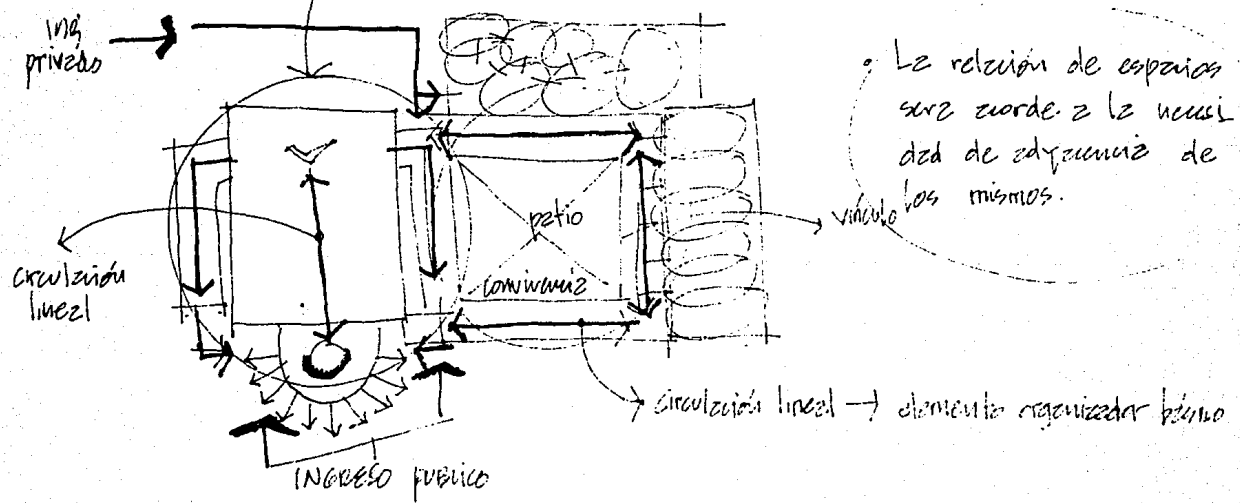 ing
privado
• La relación de espacios
sera acorde a la necesi
dad de adyacencia de
los mismos.
patio
vínculo
convivencia
circulación
lineal
circulación lineal → elemento organizador básico
INGRESO PUBLICO